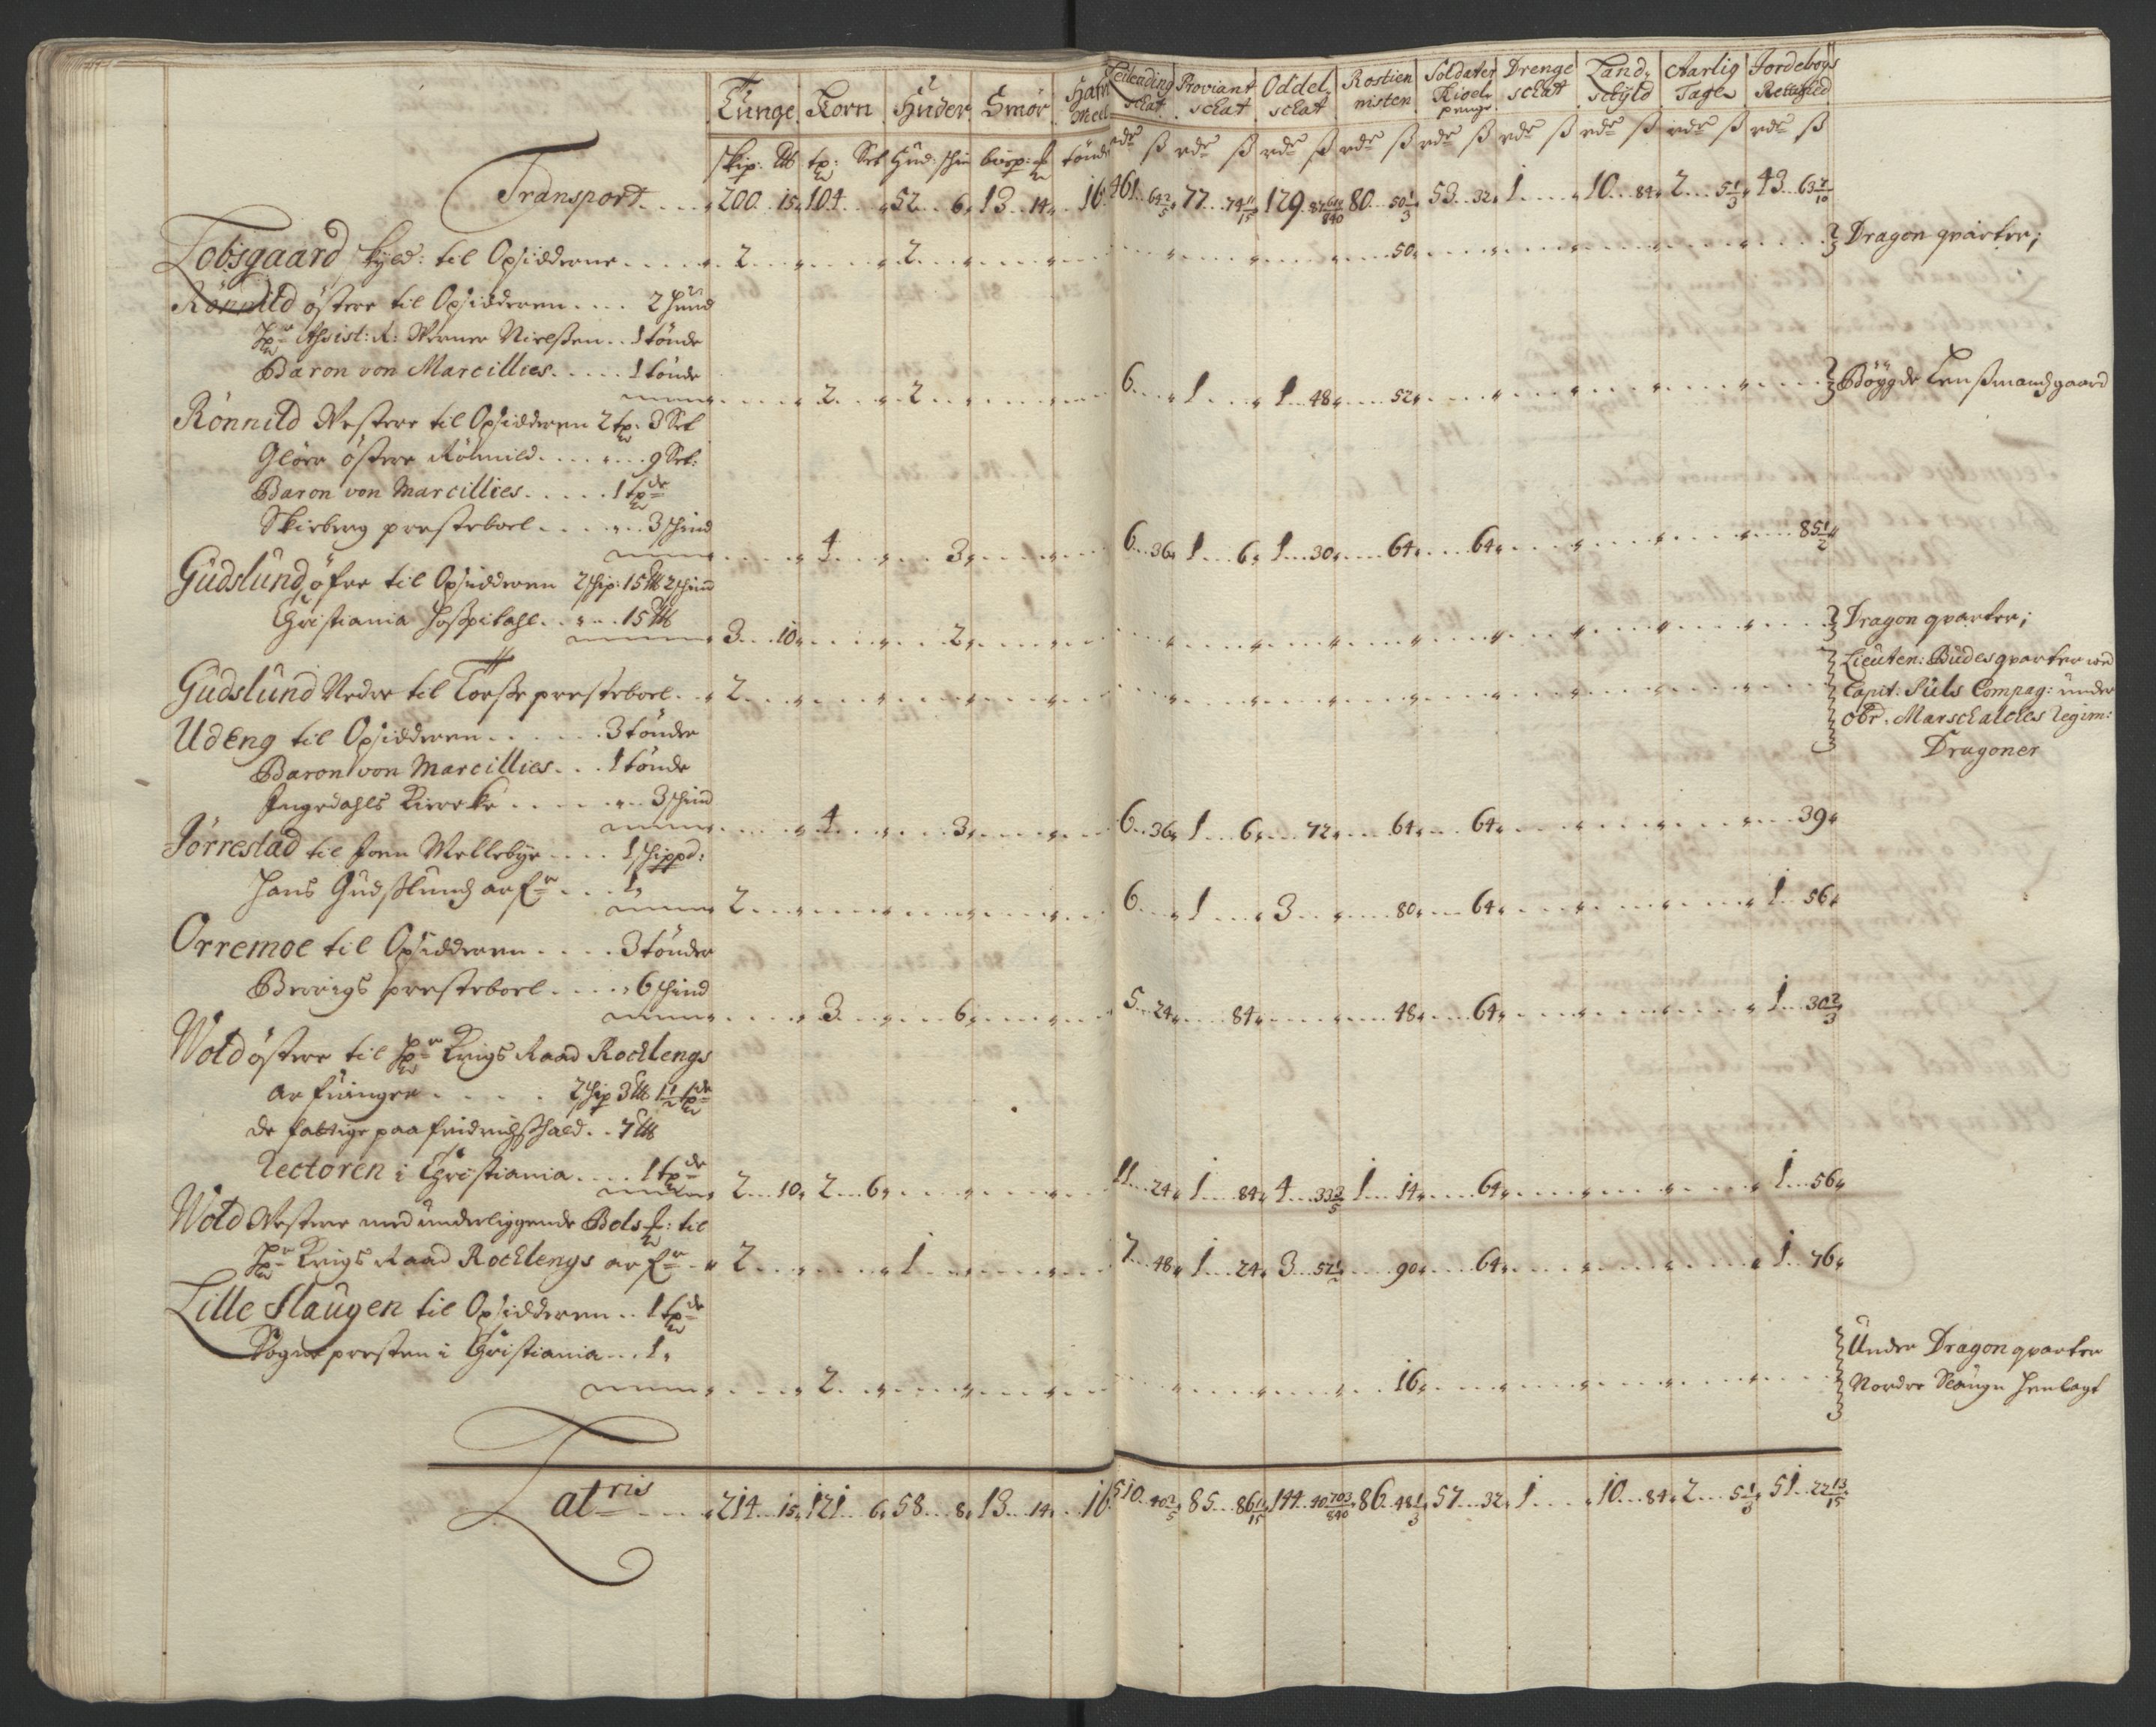 Tunge Korn Huder Smør Hafr Meel Leilending schat Proviant schat Oddel schat Rostien nisten Soldater Kioel penge Drenge schat Land schyld Aarlig Tage Jordebogs Rettighed
skip: tp: Set Hud: schin bisp: tønde rdr ß rdr ß rdr ß rdr ß rdr ß rdr ß rdr ß rdr ß rdr ß
Transport 200 15 104 52 6 13 14 16 461 64 2/5 77 74 11/15 129 80 50 1/3 53 32 1 10 84 2 5 1/3 43 63 7/10
Tobsgaard schyld: til Opsidderne 2 2 50 Dragon qvarter;
Rönnild östere til Opsidderen 2 hund
Hr Assist: R: Werner Nielßen 1 tönde
Baron von Marcillies 1 tönde
2 2 6 1 1 48 52 Böggde Lenßmandsgaard
Rönnild Westere til Opsidderen 2 tp: 3 Set
Gloer östere Rönnild 9 Set:
Baron von Marcillies 1 tp
Skieberg presteboel 3 schind
4 3 6 36 1 6 1 30 64 64 85 1/2
Gudslund öfre til Opsidderen 2 schip: 15 2 schind
Christiania Hospitahl 15
3 10 2 Dragon qvarter;
Gudslund Nedre til Torße presteboel 2 Lieuten: Budes qvarter ved
Capit: Süls Compag: under
Obr. Marschalches Regim:
Dragoner
Udeng til Opsidderen 3 tönder
Baron von Marcillies 1 tönde
Ingedahls Kircke 3 schind
4 3 6 36 1 6 72 64 64 39
Jörrestad til Joen Mellebye 1 schippd:
Hans Gudßlunds arf 1
2 6 1 3 80 64 1 56
Orremoe til Opsidderen 3 tönder
Berrigs presteboel 6 schind
3 6 5 24 84 48 64 1 30 2/3
Wold östere til Hr Krigs Raad Rochlengs
arfuinger 2 schip 3 1 1/2 tp
de fattige paa fridrichßhald 7
Rectoren i Christiania 1 tp
2 10 2 6 11 24 1 84 4 33 3/5 1 14 64 1 56
Wold Westere med underliggende Bols til
Hr Krigs Raad Rochlengs arf 2 1 7 48 1 24 3 57 1/2 90 64 1 76
Lille Slaugen til Opsidderen 1 tp
Sogne presten i Christiania 1
2 16 Under Dragon qvarter
Nordre Slaugn henlagt
Latris 214 15 121 6 58 8 13 14 16 510 40 2/5 85 86 11/15 144 40 703/840 86 48 1/3 57 32 1 10 84 2 5 1/3 51 22 13/15